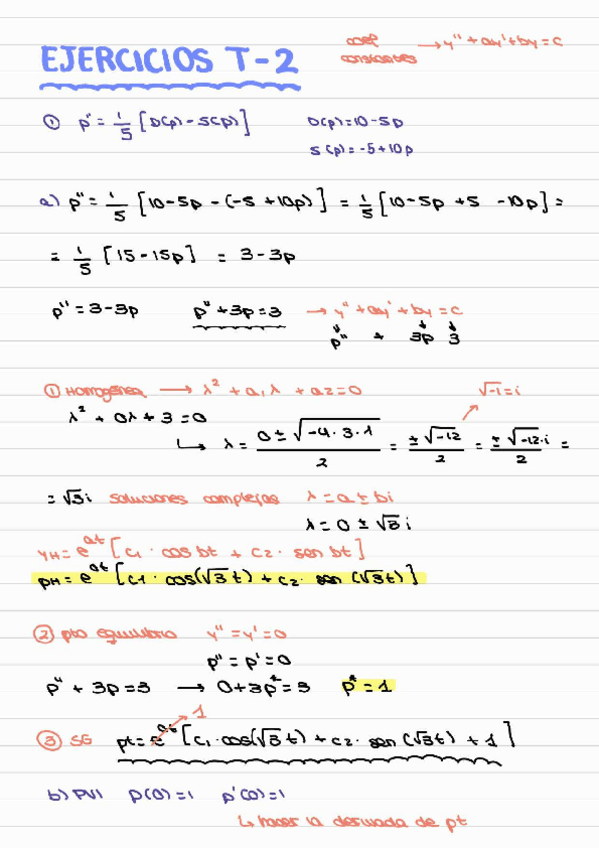 EJERCICIOS T-2
coef constantes → y'' + ay' + by = c
① p'' = 1/5 [D(p) - S(p)]   D(p) = 10 - 5p
S(p) = -5 + 10p
a) p'' = 1/5 [10 - 5p - (-5 + 10p)] = 1/5 [10 - 5p + 5 - 10p] =
= 1/5 [15 - 15p] = 3 - 3p
p'' = 3 - 3p   p'' + 3p = 3 → y'' + ay' + by = c
p'' + 3p 3
① Homogénea → λ² + a₁λ + a₂ = 0   √-1 = i
λ² + 0λ + 3 = 0
↳ λ = (0 ± √-4·3·1)/2 = ±√-12/2 = ±√-12·i/2 =
= √3i soluciones complejas λ = a ± bi
λ = 0 ± √3 i
yH = e^at [c1 · cos bt + c2 · sen bt]
pH = e^at [c1 · cos(√3t) + c2 · sen(√3t)]
② pto equilibrio y'' = y' = 0
p'' = p' = 0
p'' + 3p = 3 → 0 + 3p* = 3   p* = 1
1
③ SG pt = e^at [c1 · cos(√3t) + c2 · sen(√3t) + 1]
b) PVI p(0) = 1   p'(0) = 1
↳ hacer la derivada de pt